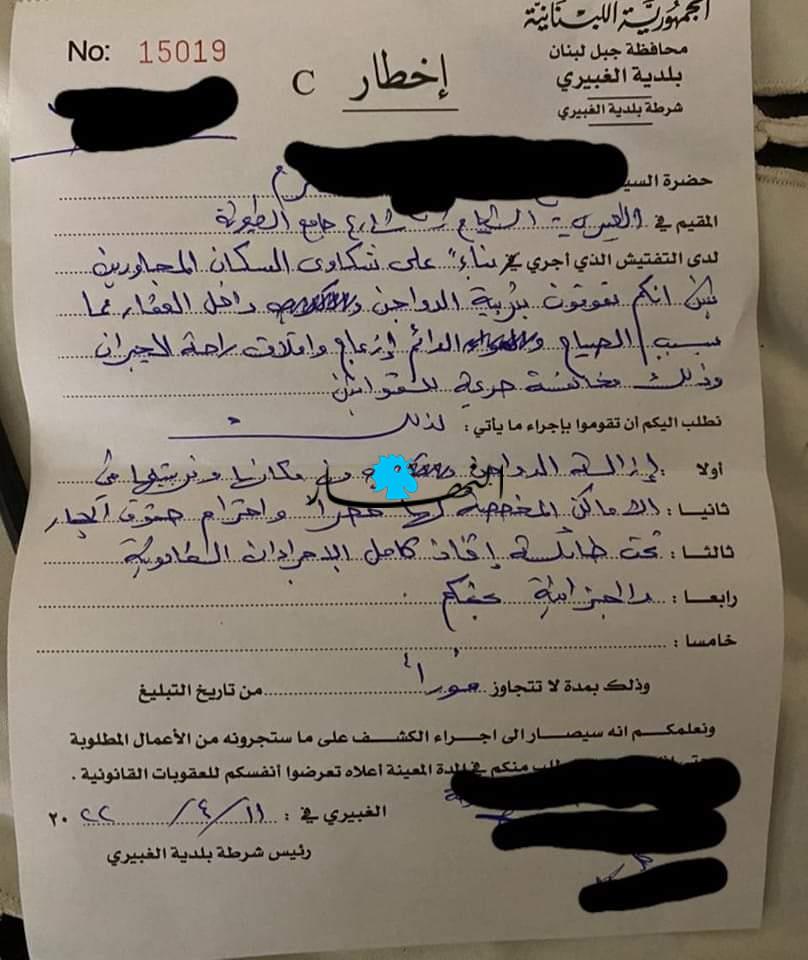 الجمهورية اللبنانية
محافظة جبل لبنان
بلدية الغبيري
شرطة بلدية الغبيري
No: 15019
إخطار C
حضرة السيد
المقيم في الغبيري الشياح شارع جامع الطيونة
لدى التفتيش الذي أجري في بناءً على شكاوى السكان المجاورين
تبين انكم تقومون بتربية الدواجن داخل العقار مما
يسبب الصياح الدائم إزعاج واقلاق راحة الجيران
وذلك مخالفة صريحة للقوانين
نطلب اليكم أن تقوموا بإجراء ما يأتي: لذلك
أولا : إزالة الدواجن من مكانها وتربيتها في
ثانيا : الاماكن المخصصة لها حصراً واحترام حقوق الجار
ثالثا : تحت طائلة إتخاذ كامل الاجراءات القانونية
رابعا : والجزائية بحقكم
خامسا :
النهار
وذلك بمدة لا تتجاوز فوراً من تاريخ التبليغ
ونعلمكم انه سيصار الى اجراء الكشف على ما ستجرونه من الأعمال المطلوبة
منكم في المدة المعينة أعلاه تعرضوا أنفسكم للعقوبات القانونية .
الغبيري في : ١١/٤/٢٠٢٢
رئيس شرطة بلدية الغبيري